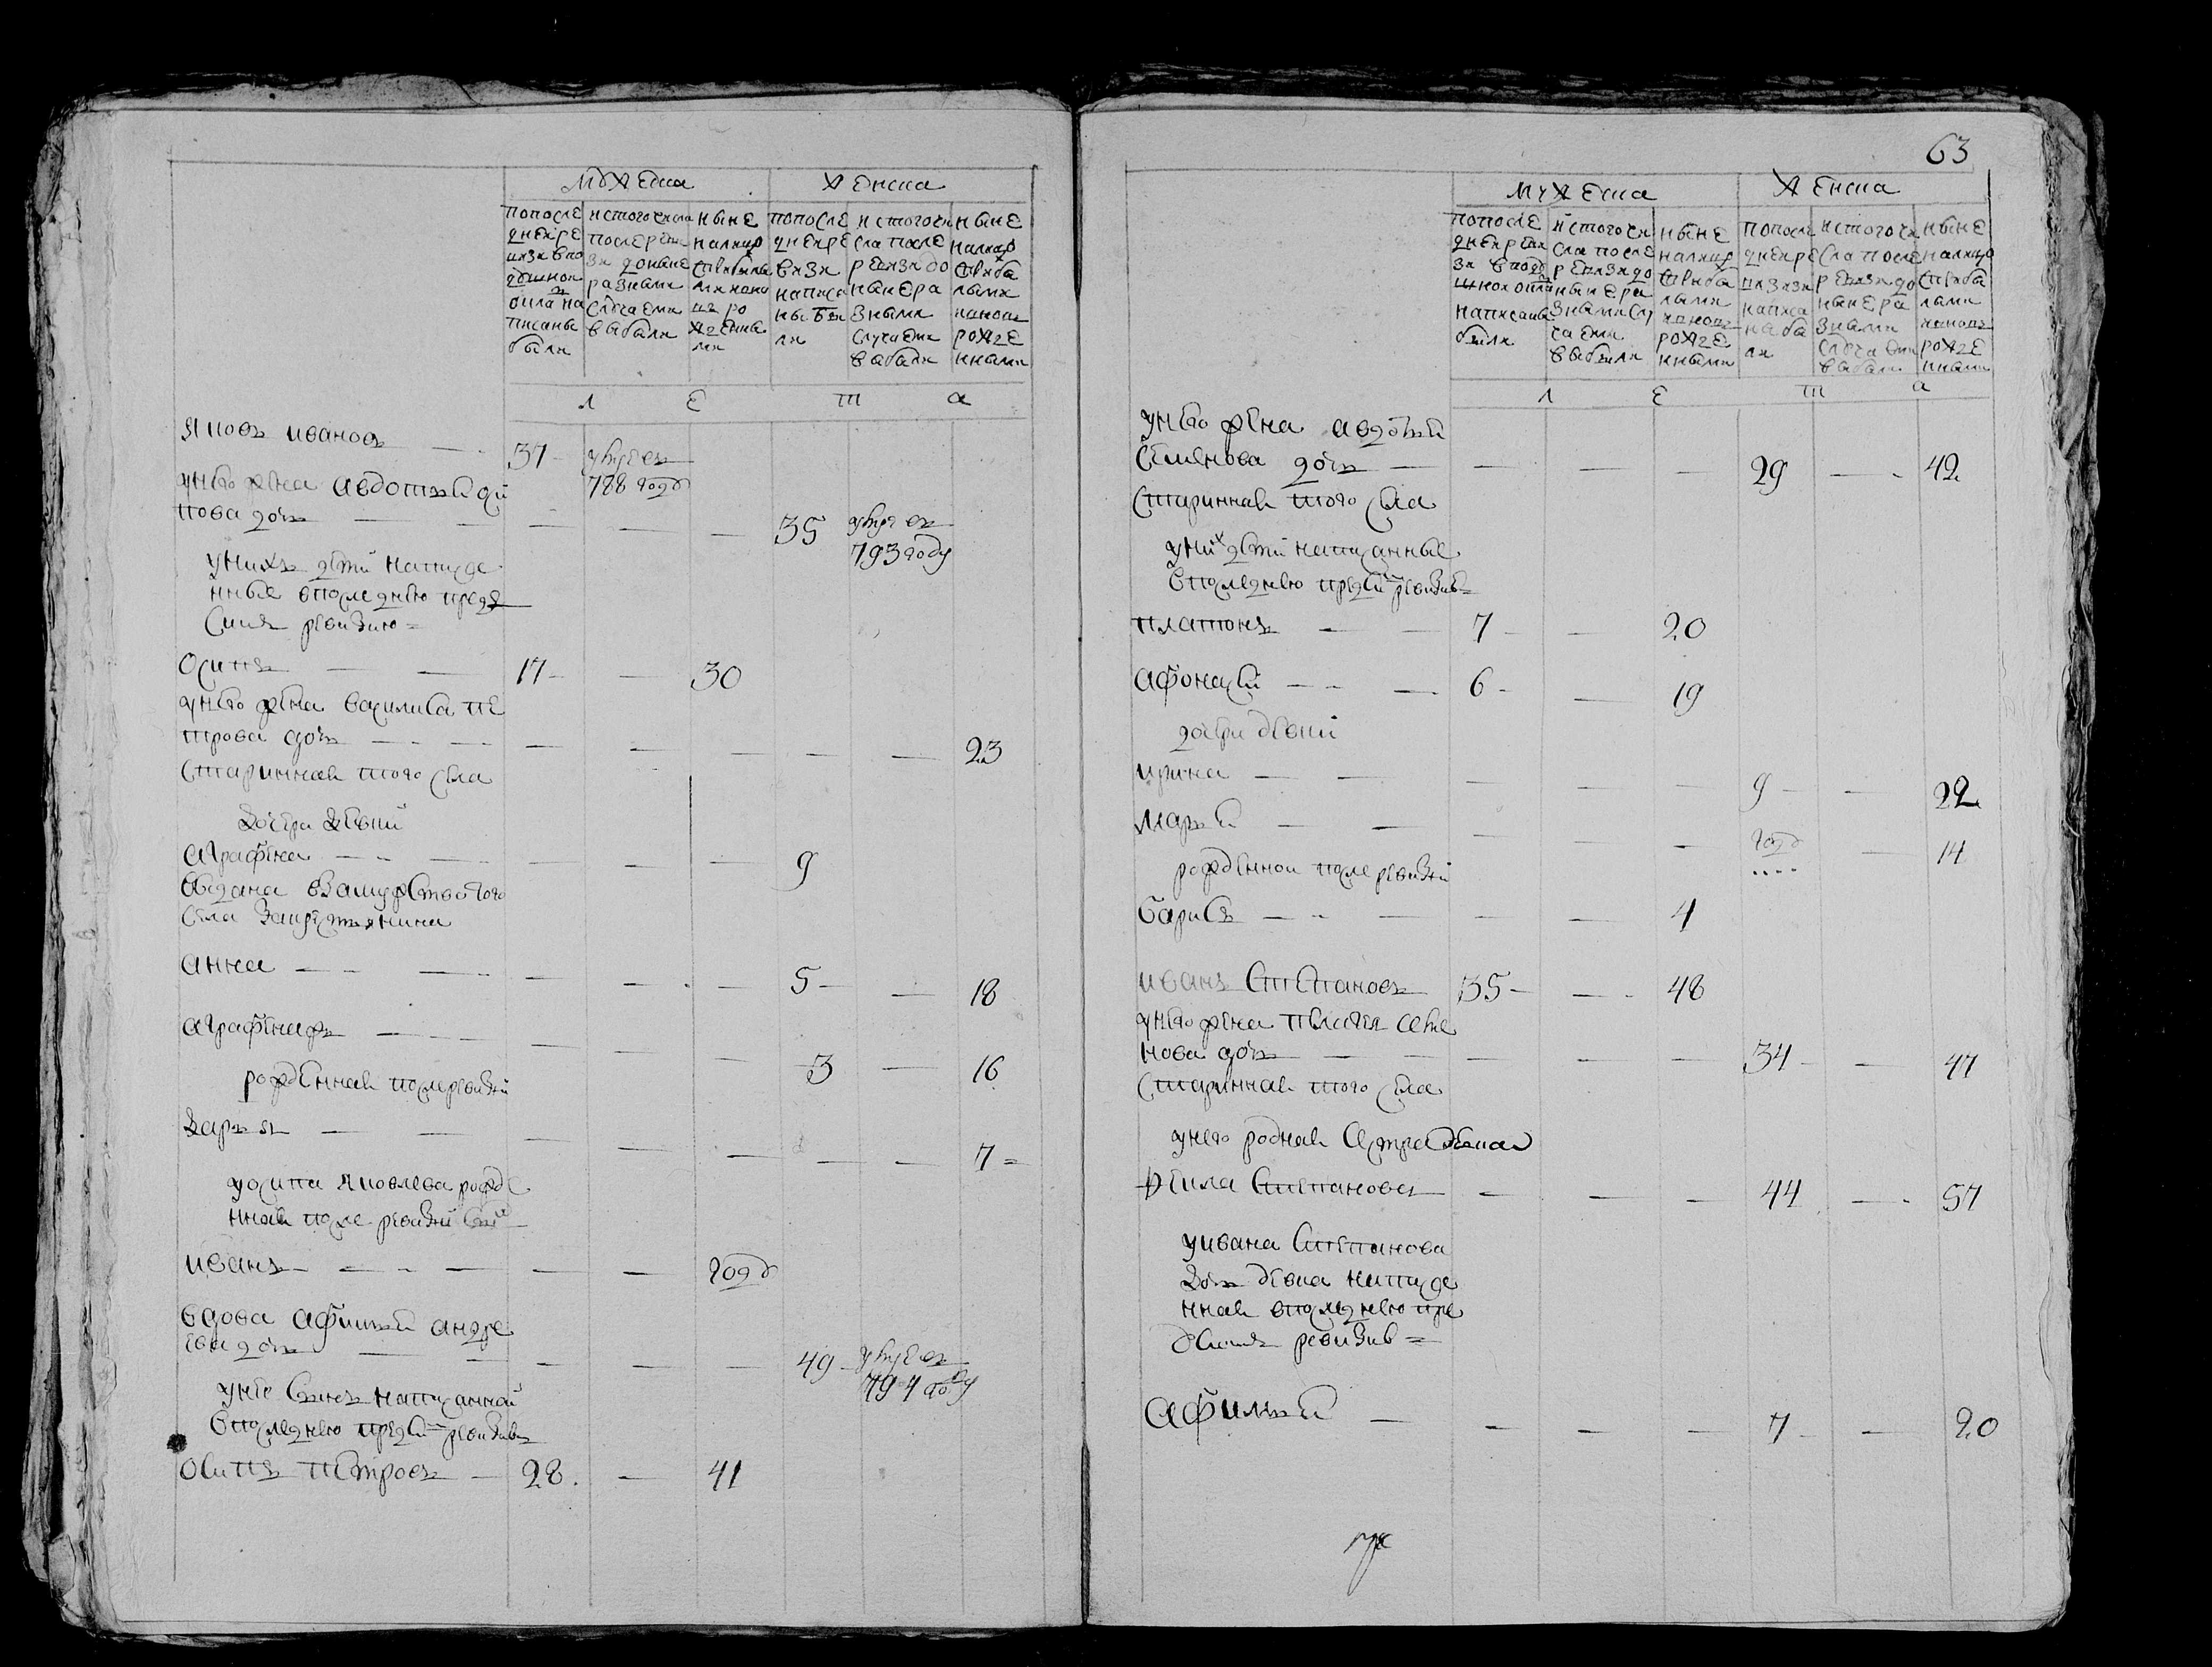 63
Мужеска Женска
попосле днейре визи впо душнои оклад написаны были
истогочисла послеревизи доныне разными случаеми выбыли
ныне налицо спрыбылыми иновь рожденными
попосле днейре визи написаны были
истогочисла после ревизи до ныне разными случаеми выбыли
ныне налицо спрыбылыми ивновь рожденными
Л Е Т А
Яковъ ивановъ — 37 умре въ
788 году
унего жена авдотья
пова дочь — — — — — 35 умре въ
793 году
унихъ дети написа
нные впоследнюю предъ
симъ ревизию =
Осипъ — — 17 — — 30
унего жена василиса пе
трова дочь — — — — — — — 23
стариннаея того села
дочери девки
аграфена — — — — — 9
выдана взамужство того
села закрестьянина
анна — — — — — 5 — — 18
аграфена — — — — — 3 — 16
рожденная послеревизи
дарья — — — — — — — 7 =
уосипа яковлева рожде
нная после ревизи сынъ
иванъ — — — — — годъ
вдова афимья андре
ева дочь — — — — — 49 — умре въ
794 году
унее сынъ написанной
впоследнюю предъ сей ревизию
осипъ петровъ — 28. — 41
Мужеска Женска
попосле днейреви зи вподушнои оклад написаны были
истогочи сла после ревизидо ныне разными случаеми выбыли
ныне налицо спрыбылыми ивновь рожденными
попосле днейре визизи написаны были
истогочи сла после ревизидо ныне разными случаеми выбыли
ныне налицо спрыбылыми ивновь рожденными
Л Е Т А
унего жена авдотья
семенова дочь — — — — 29 — 42
стариннаея того села
унихъ дети написанные
впоследнюю предъ сей ревизию =
платонъ — — 7 — — 20
афонасей — — 6 — — 19
дочери девки
ирина — — — — — 9 — — 22
марья — — — — годъ — 14
рожденнои после ревизи
барисъ — — — — 4
иванъ степановъ 35 — — 48
унего жена пелагея семе
нова дочь — — — — — 34 — — 47
стариннаея того села
унего родная сестра девка
фекла степанова — — — 44 — 57
уивана степанова
дочь девка написа
нная впоследнюю пре
дсимъ ревизию =
афимья — — — — 7 — — 20